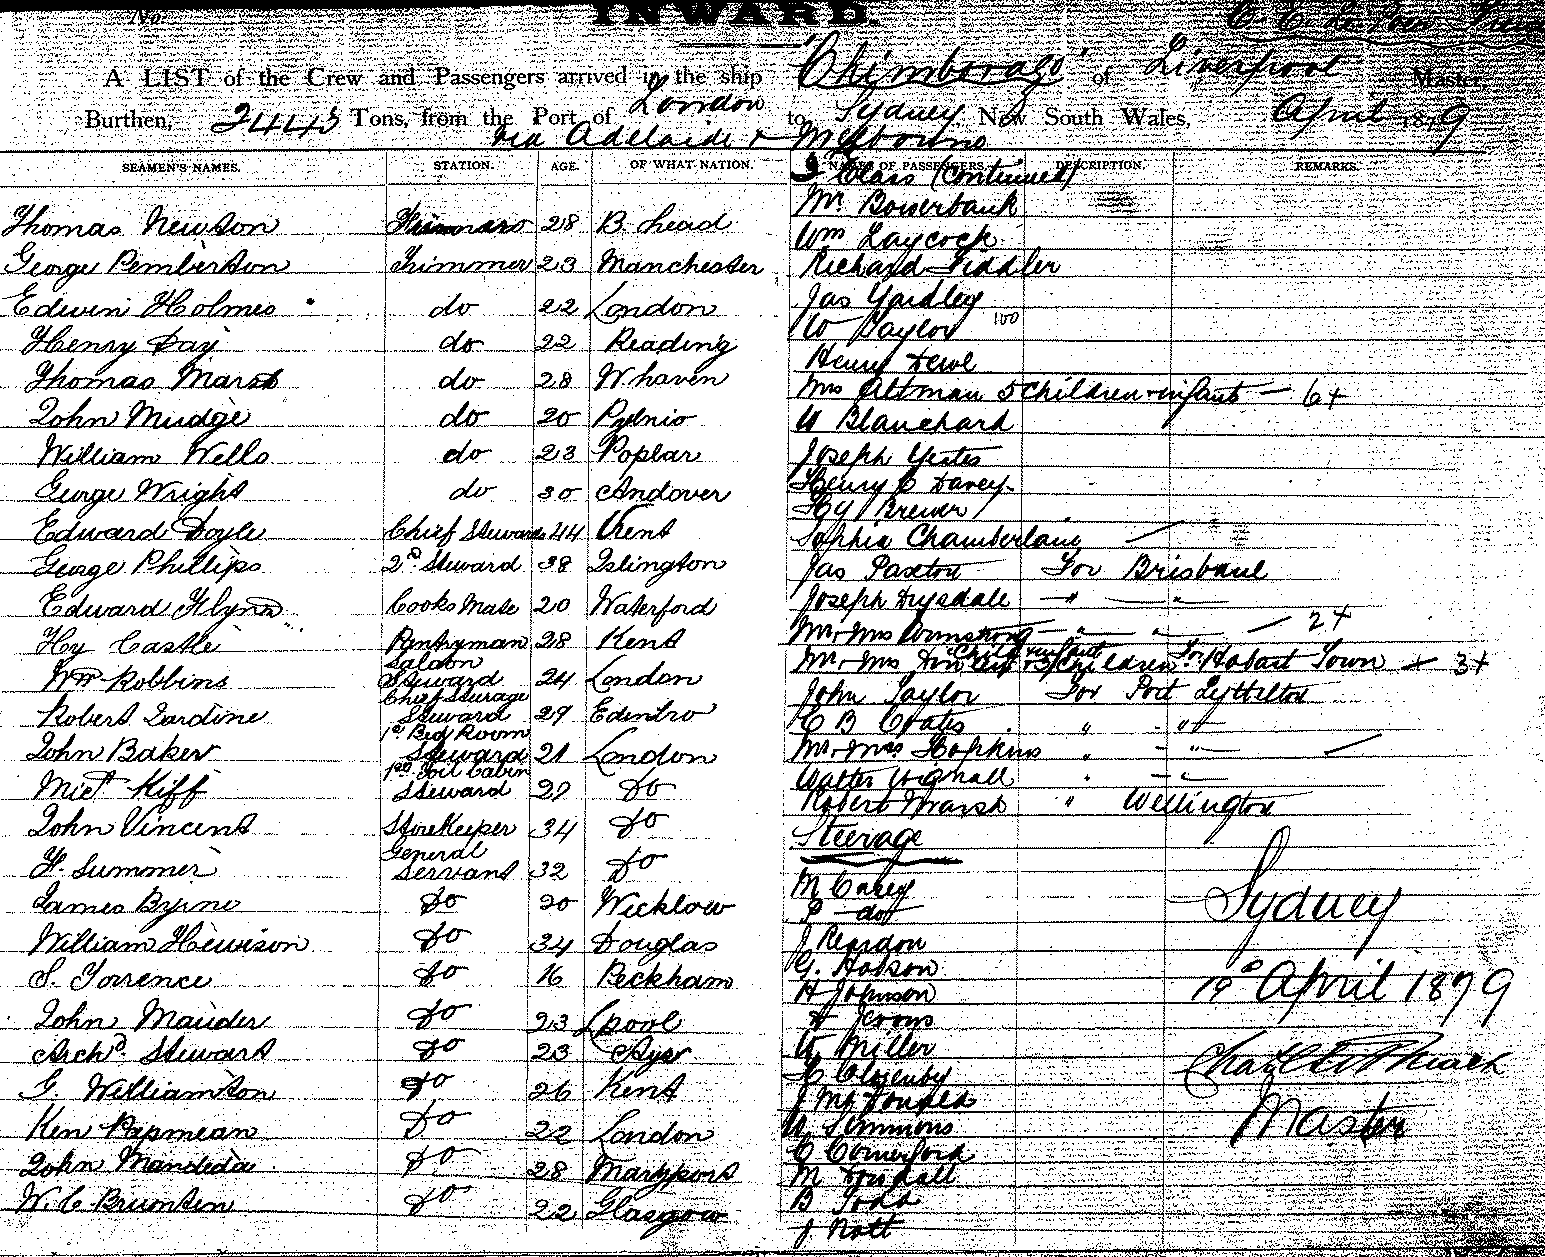 No.
INWARD.
A LIST of the Crew and Passengers arrived in the ship "Chimborazo" of Liverpool Master
Burthen, 2443 Tons, from the Port of London to Sydney, New South Wales, April 1879
via Adelaide & Melbourne
SEAMEN'S NAMES. STATION. AGE. OF WHAT NATION. NAMES OF PASSENGERS. DESCRIPTION. REMARKS.
Thomas Newton 28 B. head
George Pemberton Trimmer 23 Manchester
Edwin Holmes do 22 London
Henry Day do 22 Reading
Thomas Marsh do 28 W. haven
John Mudge do 20
William Wells do 23 Poplar
George Wright do 30 Andover
Edward Doyle Chief Steward 44 Kent
George Phillips 2d Steward 38 Islington
Edward Flynn Cooks Mate 20 Waterford
Hy Castle Pantryman 28 Kent
Wm Robbins Saloon Steward 24 London
Robert Jardine Chief Steerage Steward 29
John Baker 1st Bed Room Steward 21 London
Kiff Steward Do
John Vincent Storekeeper 34 Do
F. Summer General Servant 32 Do
James Byrne Do 20 Wicklow
William Hewison Do 34 Douglas
S. Torrence Do 16 Peckham
John Mauder Do 23 Lpool
Archd Stewart Do 23 Ayr
G. Williamson Do 26 Kent
Ken Papmean Do 22 London
John Do 28 Maryport
W. C. Brunton Do 22 Glasgow
Class (continued)
Mr Bowerbank
Wm Laycock
Richard Fiddler
Jas Yardley
W Taylor 100
Henry
Mrs Altman 5 Children & infant — 6+
W Blanchard
Joseph Yeates
Henry C Davey
Hy Brewer
Sophia Chamberlain
Jas Paxton For Brisbane
Joseph Drysdale — " — " —
Mr & Mrs Armstrong — " — " — 2+
Mr & Mrs Child & infant Children For Hobart Town — 3+
John Taylor For Port Lyttelton
C B Coates " — " —
Mr & Mrs Hopkins " — " —
Walter Wignall " — " —
Robert Marsh " Wellington
Steerage
M Carey
P — do
J Reardon
G. Hobson
H Johnson
W Miller
J McDonald
W Simmons
C Comerford
M
B Todd
J Nott
Sydney
19th April 1879
Master